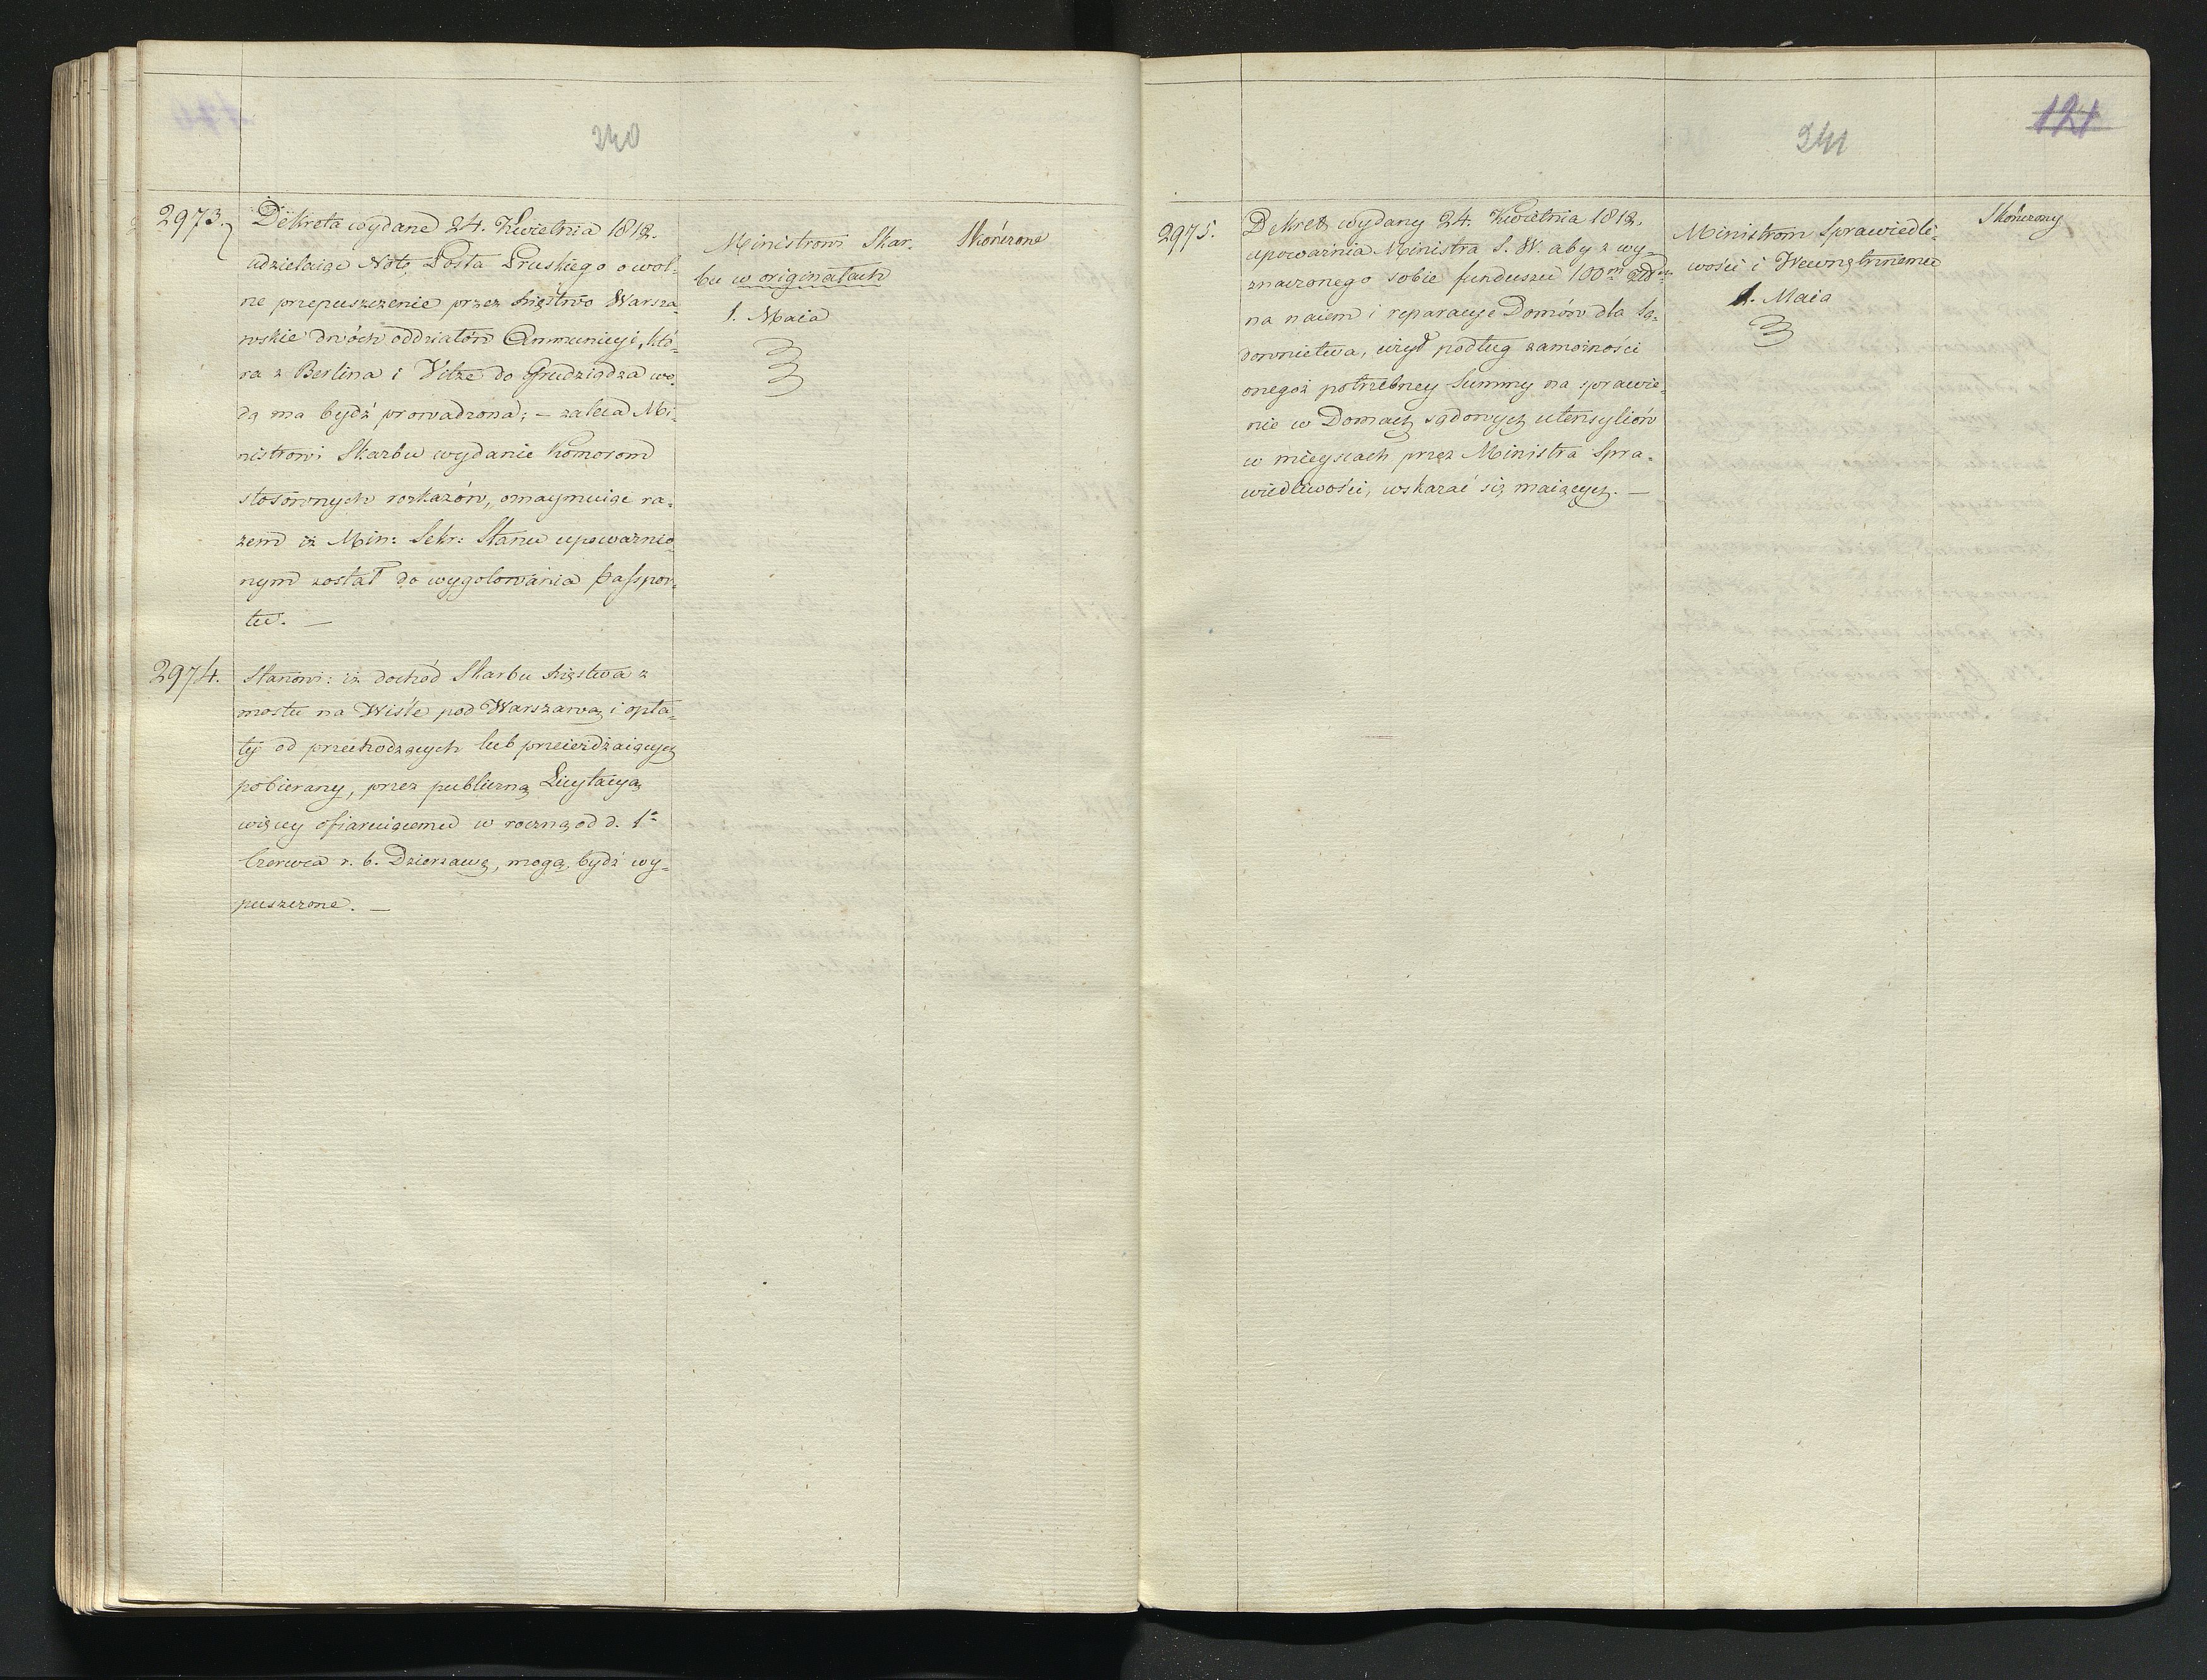 240
2973.
Dekreta wydane 24. Kwietnia 1812.
udzielaiąc Notę Posła Pruskiego o wol-
ne przepuszczenie przez Xięstwo Warsza-
wskie dwóch oddziałów Ammunicyi, któ-
ra z Berlina i Vitze do Grudziądza wo-
dą ma bydź prowadzona; – zaleca Mi-
nistrowi Skarbu wydanie Komorom
stosownych rozkazów, oznaymuiąc ra-
zem iż Min: Sekr: Stanu upoważnio-
nym został do wygotowania passpor-
tu. —
Ministrowi Skar-
bu w originałach
1. Maia
Skończone
2974.
Stanowi: iż dochód Skarbu Xięstwa z
mostu na Wiśle pod Warszawą i opła-
ty od przechodzących lub przeieżdżaiących
pobierany, przez publiczną Licytacyą
więcy ofiaruiącemu w roczną od d. 1o
Czerwca r. b. Dzierzawę, mogą bydź wy-
puszczone. —
241
121
2975.
Dekret wydany 24. Kwietnia 1812.
upoważnia Ministra S. W. aby z wy-
znaczonego sobie funduszu 100m Złł
na naiem i reparacye Domów dla Są-
downictwa, użył podług zamożności
onegoż potrzebney Summy na sprawie-
nie w Domach sądowych utensyliów
w mieyscach przez Ministra Spra-
wiedliwości, wskazać się maiących. —
Ministrom Sprawiedli-
wości i Wewnętrznemu
1. Maia
Skończony